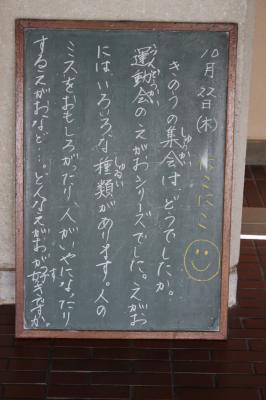 10月22日(木)
にこにこ
きのうの集会は、どうでしたか。
しゅうかい
運動会のえがおシリーズでした。えがお
うんどうかい
には、いろいろな種類があります。人の
しゅるい
ミスをおもしろがったり、人がいやになったり
するえがおなど…。どんなえがおが好きですか。
す